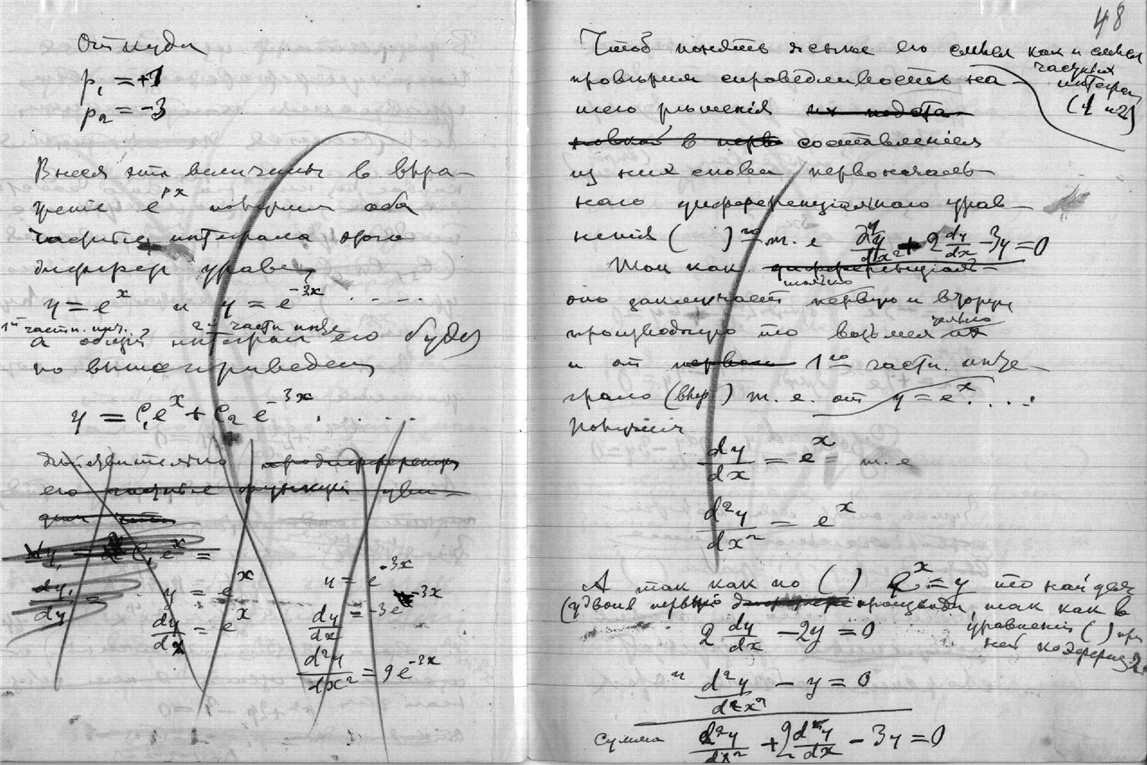 Откуда
p₁ = +1
p₂ = -3
Внеся эти величины в выра-
жение e^{px} получим оба
частные интеграла этого
диффер уравн
y = e^x и y = e^{-3x} . - - .
1й частн. инт. 2й частн инте
а общий интеграл его будет
по выше приведен
y = C₁e^x + C₂ e^{-3x} . . . .
действительно продифференц
его частные функции уви-
дим что
dy₁
y = e^x
dy/dx = e^x
y = e^{-3x}
dy/dx = -3e^{-3x}
d²y/dx² = 9e^{-3x}
48
Чтоб понять яснее его смысл как и смысл
частных
интеграл
(1 и 2)
проверим справедливость на-
шего решения их подста-
новкой в перв составлением
из них снова первоначаль-
ного дифференциального урав-
нения ( ) го т. е d²y/dx² + 2 dy/dx - 3y = 0
Так как дифференциаль-
только
оно заключает первую и вторую
производную то возьмем их
и от первого 1го частн. инте-
грала ( ) т. е. от y = e^x . . . .
Получим
dy/dx = e^x т. е
d²y/dx² = e^x
А так как по ( ) e^x = y то найдем
(удвоив первую производн, так как в
уравнении ( ) при
ней коэффиц. 2
2 dy/dx - 2y = 0
и d²y/dx² - y = 0
Сумма d²y/dx² + 2 dy/dx - 3y = 0